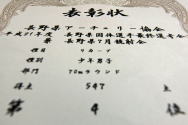 表彰状
長野県アーチェリー協会
平成21年度 長野県国体選手最終選考会
兼 長野県7月競射会
種目 リカーブ
種別 少年男子
部門 70mラウンド
得点 547 点
第 4 位